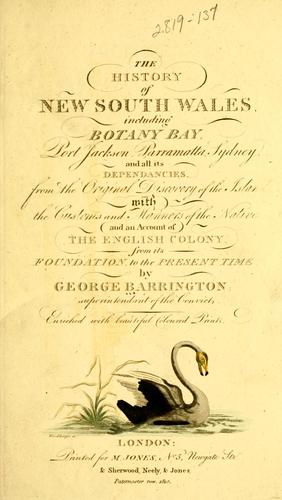 2819-137
THE
HISTORY
of
NEW SOUTH WALES,
including
BOTANY BAY,
Port Jackson, Parramatta, Sydney,
and all its
DEPENDANCIES,
from the Original Discovery of the Island
with
the Customs and Manners of the Natives
and an Account of
THE ENGLISH COLONY,
from its
FOUNDATION, to the PRESENT TIME
by
GEORGE BARRINGTON;
superintendant of the Convicts.
Enriched with beautiful Coloured Prints.
LONDON:
Printed for M. JONES, No. 5, Newgate Str
& Sherwood, Neely, & Jones,
Paternoster row.